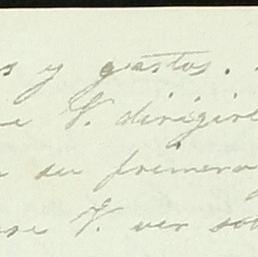 s y gastos.
e V. dirigir
su primera
se V. ver so